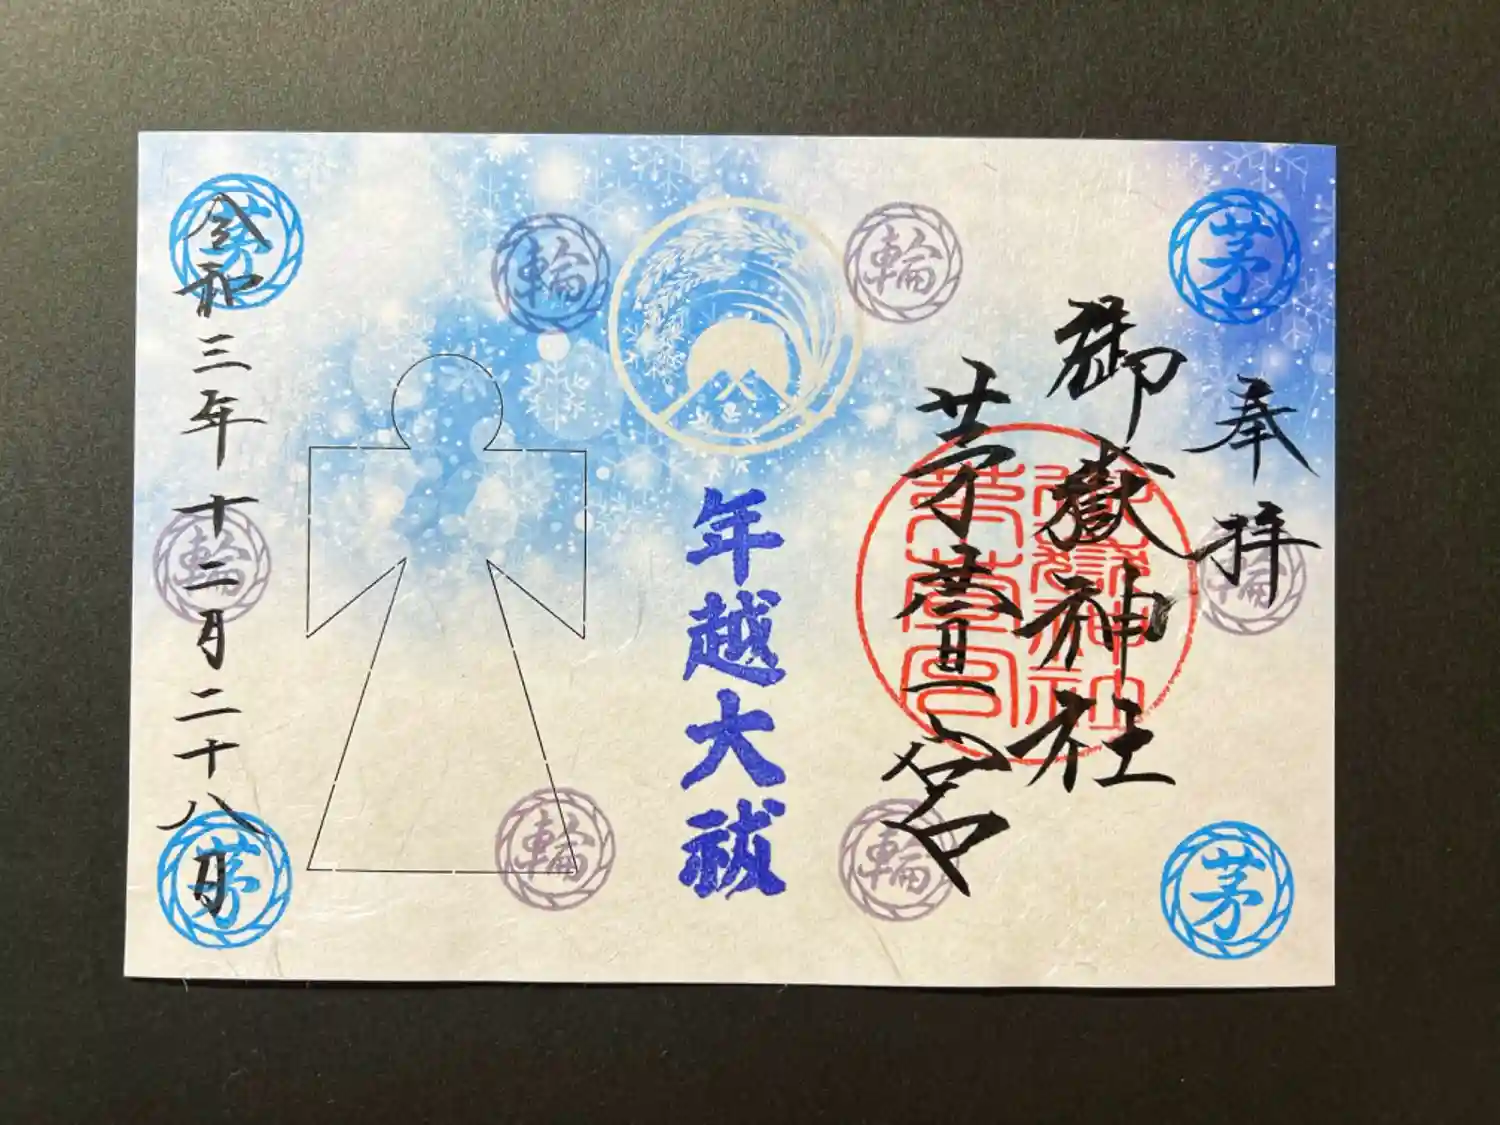 奉拝
御嶽神社
茅萱宮
御嶽神社
茅萱宮
年越大祓
令和三年十二月二十八日
茅
茅
茅
茅
輪
輪
輪
輪
輪
輪